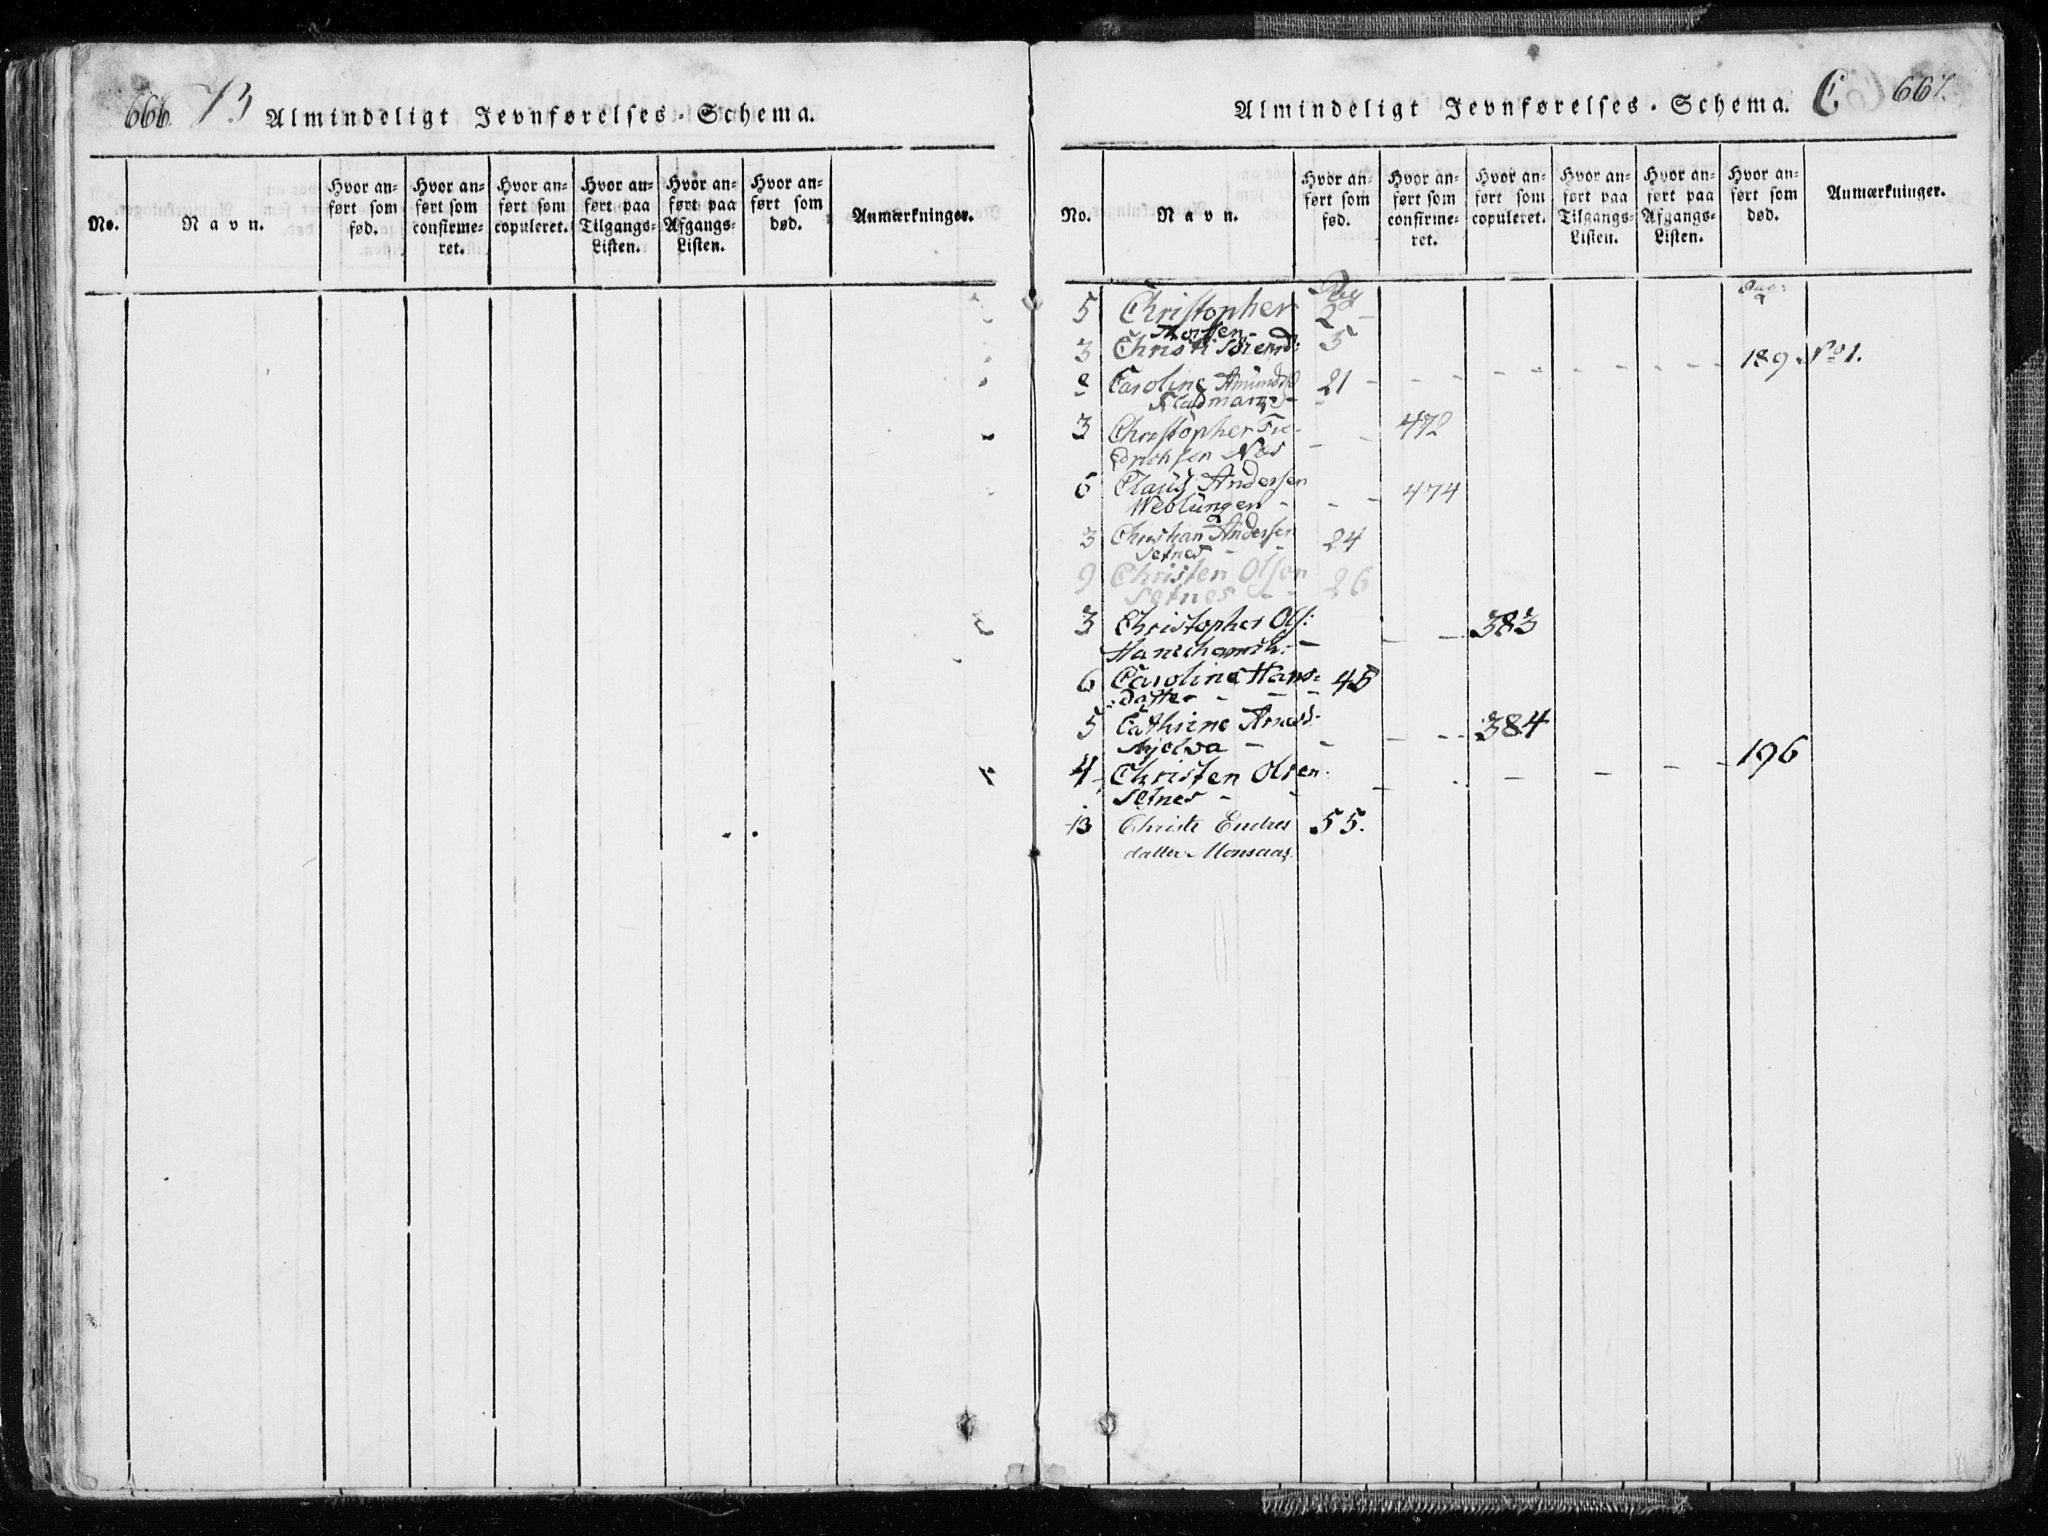 666. B Almindeligt Jevnførelses-Schema.
No.
Navn.
Hvor an-
ført som
fød.
Hvor an-
ført som
confirme-
ret.
Hvor an-
ført som
copuleret.
Hvor an-
ført paa
Tilgangs-
Listen.
Hvor an-
ført paa
Afgangs-
Listen.
Hvor an-
ført som
død.
Anmærkninger.
Almindeligt Jevnførelses-Schema. C 667.
No.
Navn.
Hvor an-
ført som
fød.
Hvor an-
ført som
confirme-
ret.
Hvor an-
ført som
copuleret.
Hvor an-
ført paa
Tilgangs-
Listen.
Hvor an-
ført paa
Afgangs-
Listen.
Hvor an-
ført som
død.
Anmærkninger.
Pag Pag:
5 Christopher 2
3 Christi 5
189 No 1.
2 Caroline Amundsd 21
3 Christopher Fri- 472
drichsen Næs
6 Claus Andersen 474
Weblungen
3 Christian Andersen 24
Setnes
9 Christen Olsen 26
Setnes
3 Christopher Ols: 383
6 Caroline Hans- 45
datter
5 Cathrine 384
Mjelva
4 Christen Olsen 196
Setnes
13 Christi Endres 55.
datter Monsaas